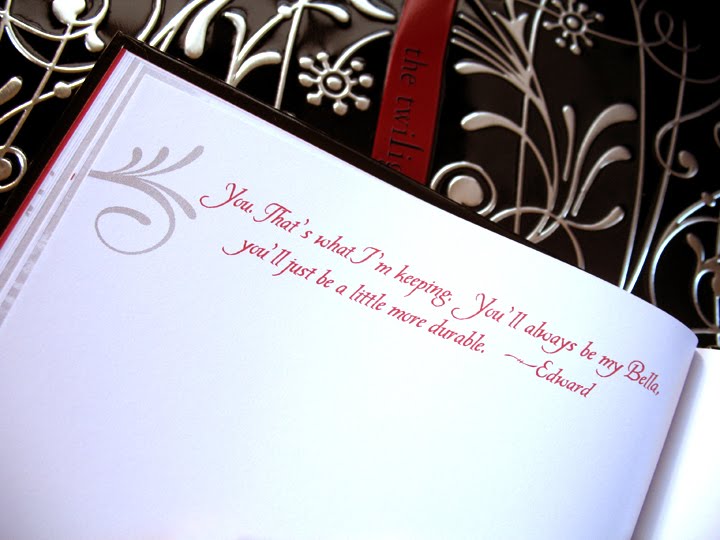 the twilig
You. That's what I'm keeping. You'll always be my Bella,
you'll just be a little more durable. —Edward